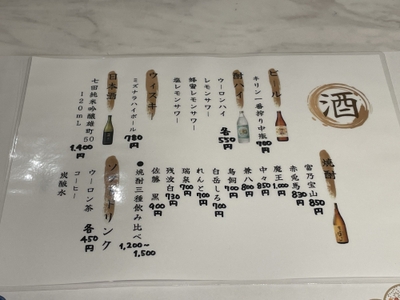 酒
ビール
キリン一番搾り中瓶
酎ハイ
ウーロンハイ
レモンサワー
蜂蜜レモンサワー
塩レモンサワー
各550円
ウィスキー
ミズナラハイボール
780円
日本酒
七田純米吟醸雄町50
120mL
1,400円
焼酎
富乃宝山 850円
赤兎馬 830円
魔王 1,000円
中々 850円
兼八 800円
鳥飼 700円
白岳しろ 700円
れんと 700円
瑞泉 700円
残波 白 730円
佐藤 黒 900円
●焼酎三種飲み比べ
1,200〜1,500
ソフトドリンク
ウーロン茶
コーヒー
炭酸水
各450円